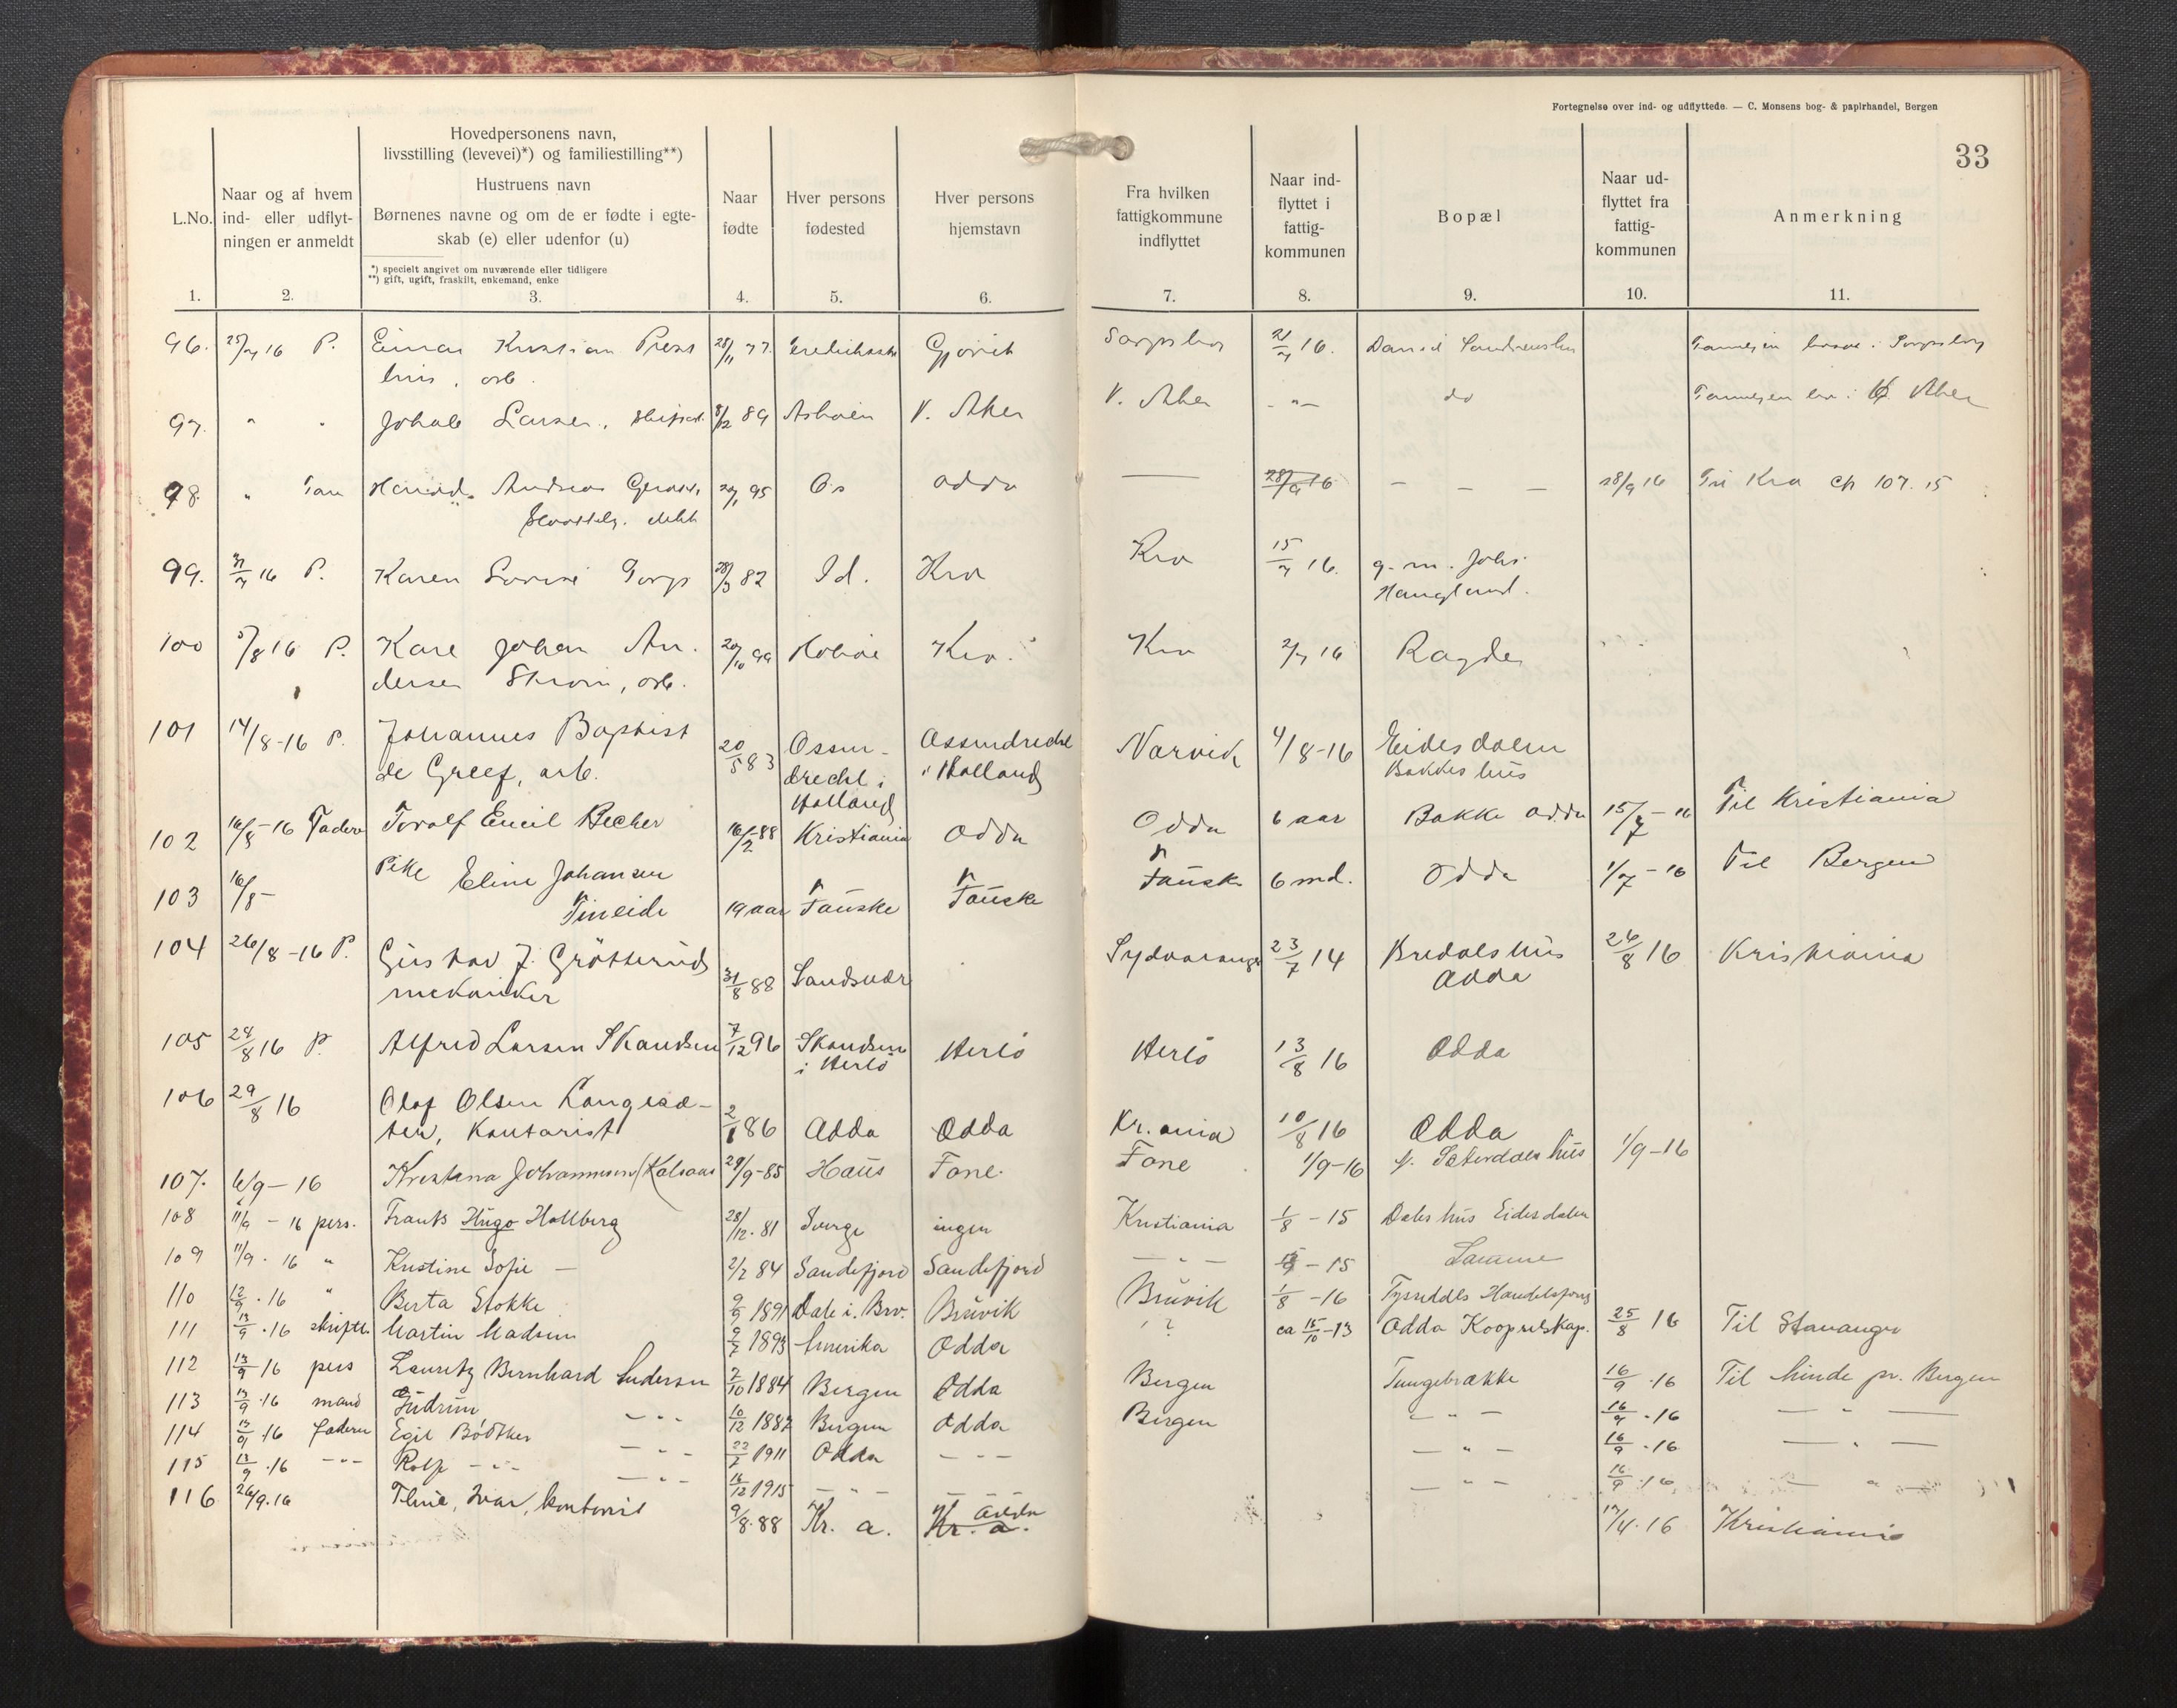 Fortegnelse over ind- og udflyttede. — C. Monsens bog- & papirhandel, Bergen
33
L.No.
1.
Naar og af hvem
ind- eller udflyt-
ningen er anmeldt
2.
Hovedpersonens navn,
livsstilling (levevei)*) og familiestilling**)
Hustruens navn
Børnenes navne og om de er fødte i egte-
skab (e) eller udenfor (u)
*) specielt angivet om nuværende eller tidligere
**) gift, ugift, fraskilt, enkemand, enke
3.
Naar
fødte
4.
Hver persons
fødested
5.
Hver persons
hjemstavn
6.
Fra hvilken
fattigkommune
indflyttet
7.
Naar ind-
flyttet i
fattig-
kommunen
8.
Bopæl
9.
Naar ud-
flyttet fra
fattig-
kommunen
10.
Anmerkning
11.
96. 25/7 16 P. Einar Kristian Prest 77. Gjøvik Sarpsborg 21/7 16. Familjen Sarpsborg
hus, arb.
97. " " Larsen, 8/12 89 Askøien V. Aker V. Aker - " - do Familjen V. Aker
98. " Andreas 95 Os Odda — 28/9 16 - - - 28/9 16 Til Kra 107. 15
99. 31/7 16 P. Karen Lovise 28/3 82 Id. Kra Kra 15/7 16. g. m. Johs.
Haugland.
100 5/8 16 P. Karl Johan An- 20/10 99 Kra. Kra 2/7 16 Ragde
dersen Strøm, arb.
101 14/8-16 P. Johannes Baptist 20/5 83 Ossen- Ossendrecht Narvik 4/8-16 Eidesdalen
de Greef, arb. drecht i i Holland Bakkes hus
Holland
102 16/8-16 Faderen Torolf Emil Becher 16/2-88 Kristiania Odda Odda 6 aar Bakke Odda 15/7-16 Til Kristiania
103 16/8- Pike Eline Johansen
Fineide 19 aar Fauske Fauske Fauske 6 md. Odda 1/7-16 Til Bergen
104 26/8-16 P. Gustav J. Grötterud 31/8 88 Sandsvær Sydvaranger 23/7 14 Bredals hus 26/8 16 Kristiania
mekaniker Odda
105 24/8 16 P. Alfred Larsen Skandsen 7/12 96 Skandsen Herlö Herlö 13/8 16 Odda
i Herlö
106 29/8 16 Olaf Olsen Langesæ- 2/1 86 Odda Odda Kr.ania 10/8 16 Odda
ter, Kontorist
107. 6/9-16 Kristina Johannesen (Kalsaas 29/9-85 Haus Fane. Fane 1/9-16 Sæterdals hus 1/9-16
108 11/9-16 pers. Frants Hugo Hallberg 28/12.81 Sverge ingen Kristiania 1/8-15 Dales hus Eidesdalen
109 11/9.16 " Kristine Sofie — 2/2 84 Sandefjord Sandefjord — " — - 15 Samme
110 12/9.16 " Berta Stokke 9/9 1891 Dale i. Brv. Bruvik Bruvik 1/8-16 Tyssedals
111 13/9.16 skriftl. Martin Madsen 9/7 1893 Amerika Odda ? ca 15/10-13 Odda Koopselskap. 25/8 16 Til Stavanger
112 13/9 16 pers Lauritz Bernhard Andersen 2/10 1884 Bergen Odda Bergen Tungebrække 16/9.16 Til Minde pr. Bergen
113 13/9.16 mand Gudrun — " — 10/12 1887 Bergen Odda Bergen — " — 16/9.16 — " —
114 13/9.16 faderen Egil Bödtker — " — 22/2 1911 Odda - - - — " — 16/9.16 — " —
115 13/9.16 - " - Rolf - " - — " — 16/12 1915 — " — 16/9.16 — " —
116 26/9.16 Ivar, kontorist 9/8.88 Kr. a. Kr. a. Odda 17/4.16 Kristiania